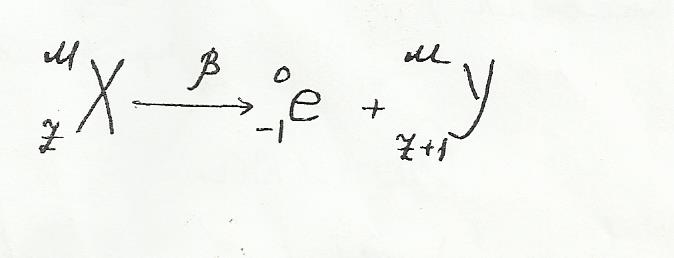 ᴹ_Z X —β→ ⁰₋₁e + ᴹ_Z+1 Y